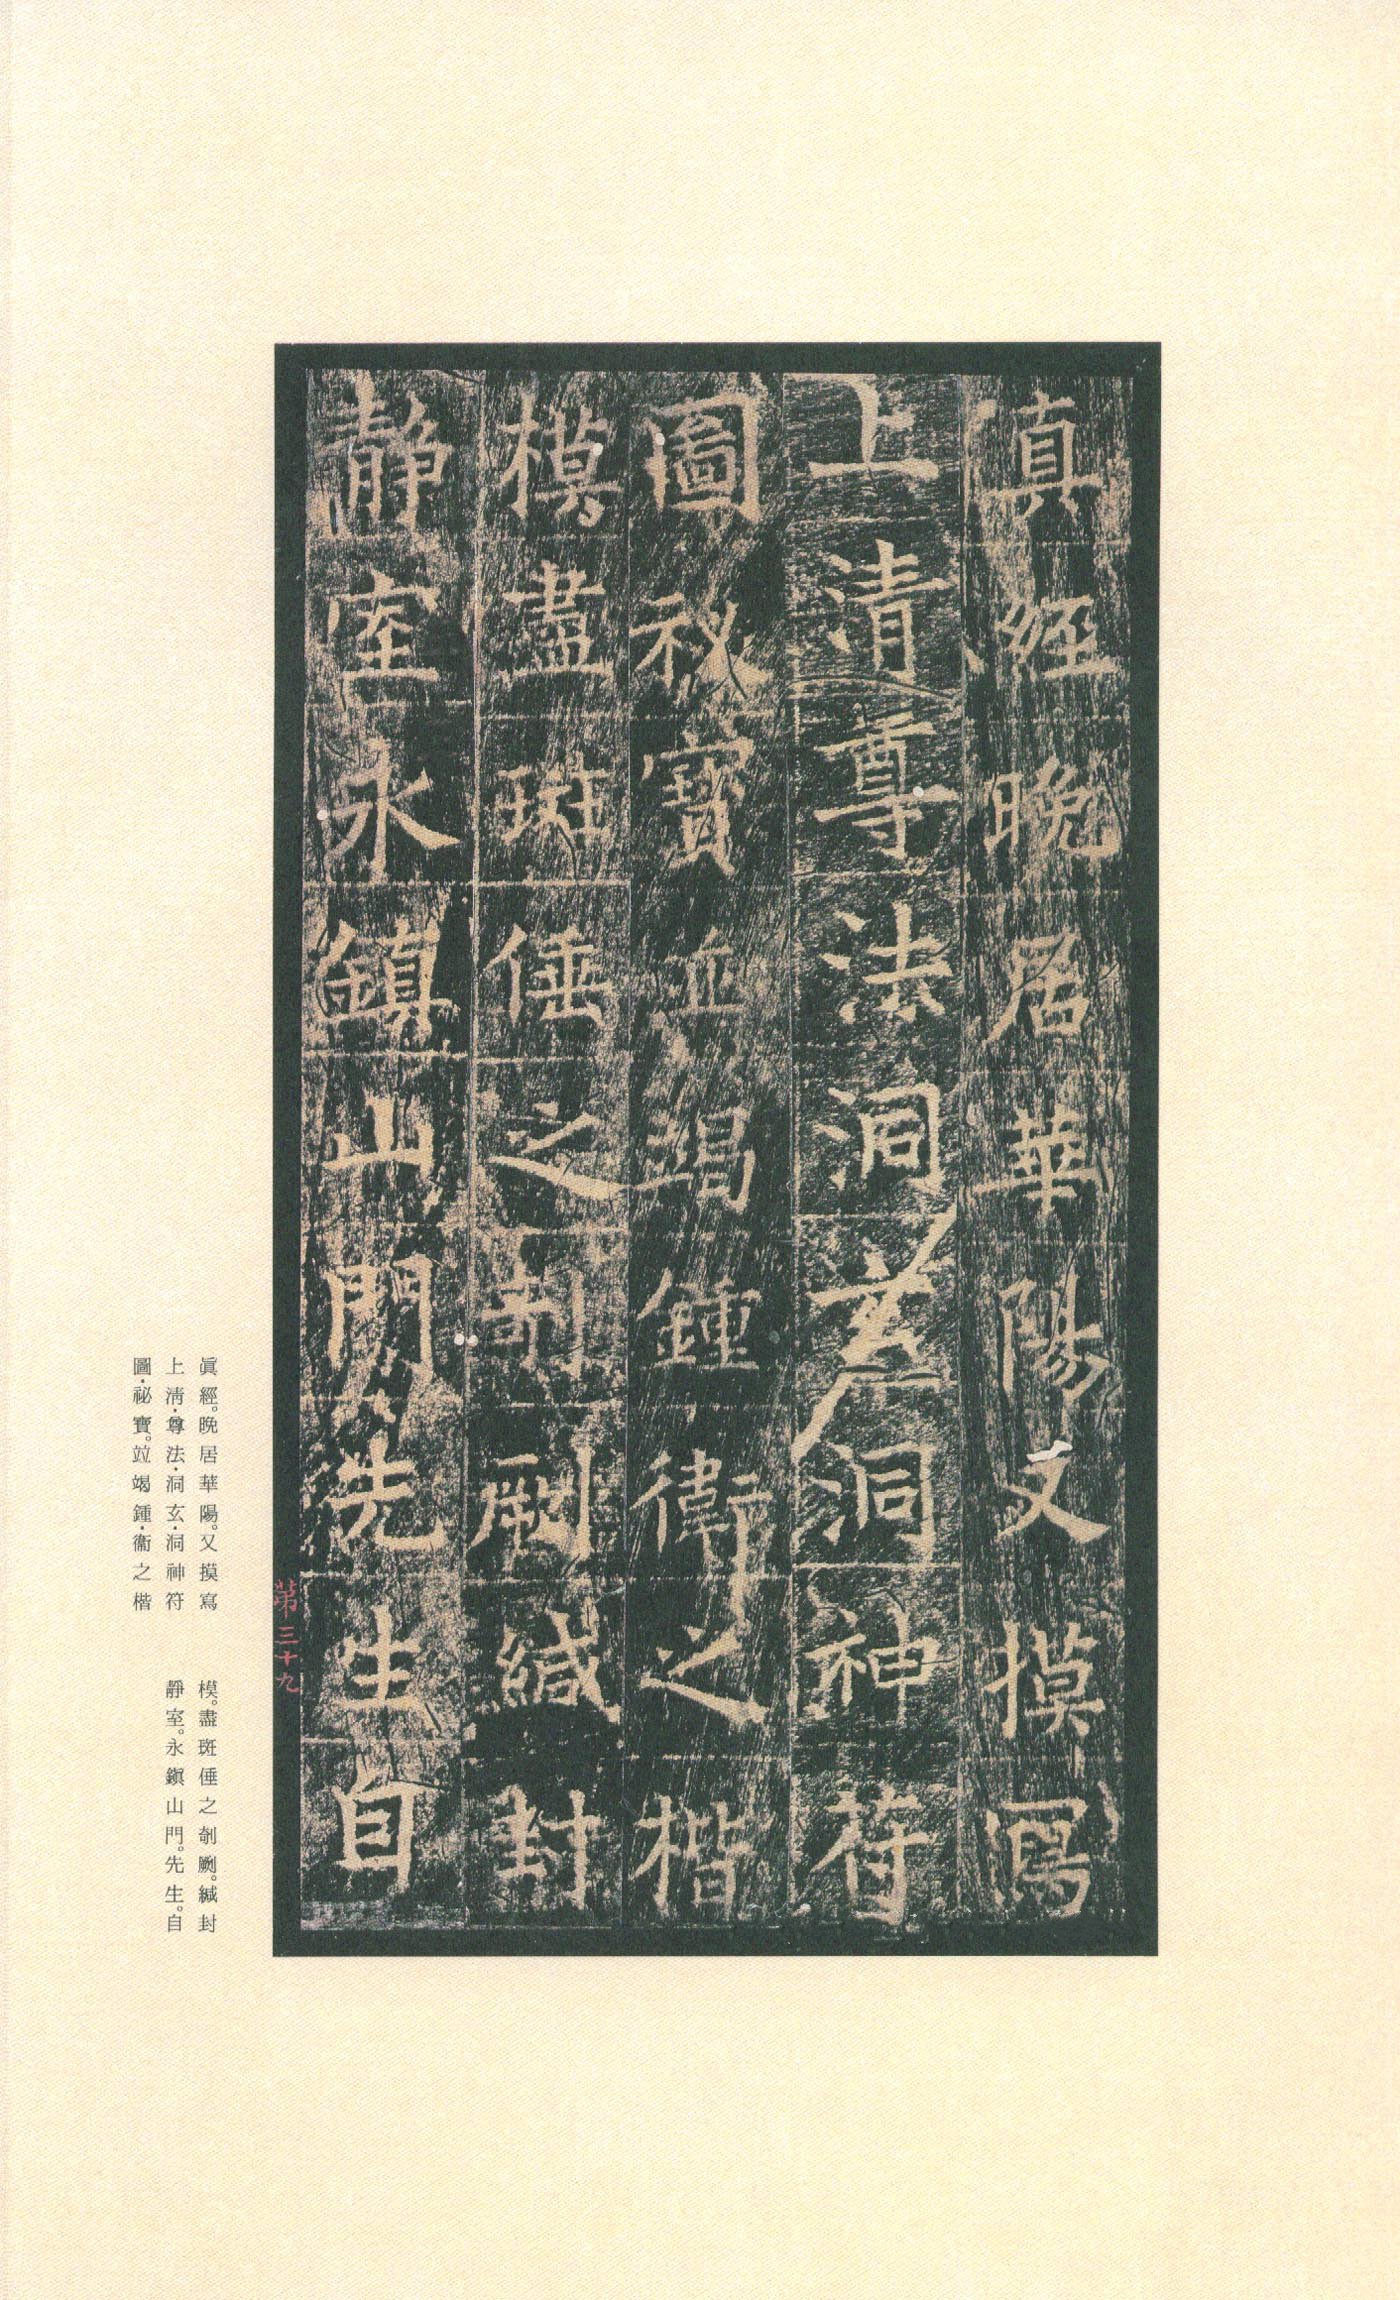 真經晚居華陽又摸寫
上清尊法洞玄洞神符
圖祕寶並竭鍾衛之楷
模盡斑倕之剞劂緘封
靜室永鎮山門先生自
第三十九
眞經。晩居華陽。又摸寫
上淸・尊法・洞玄・洞神符
圖・祕寶。竝竭鍾・衞之楷
模。盡斑倕之剞劂。緘封
靜室。永鎭山門。先生。自